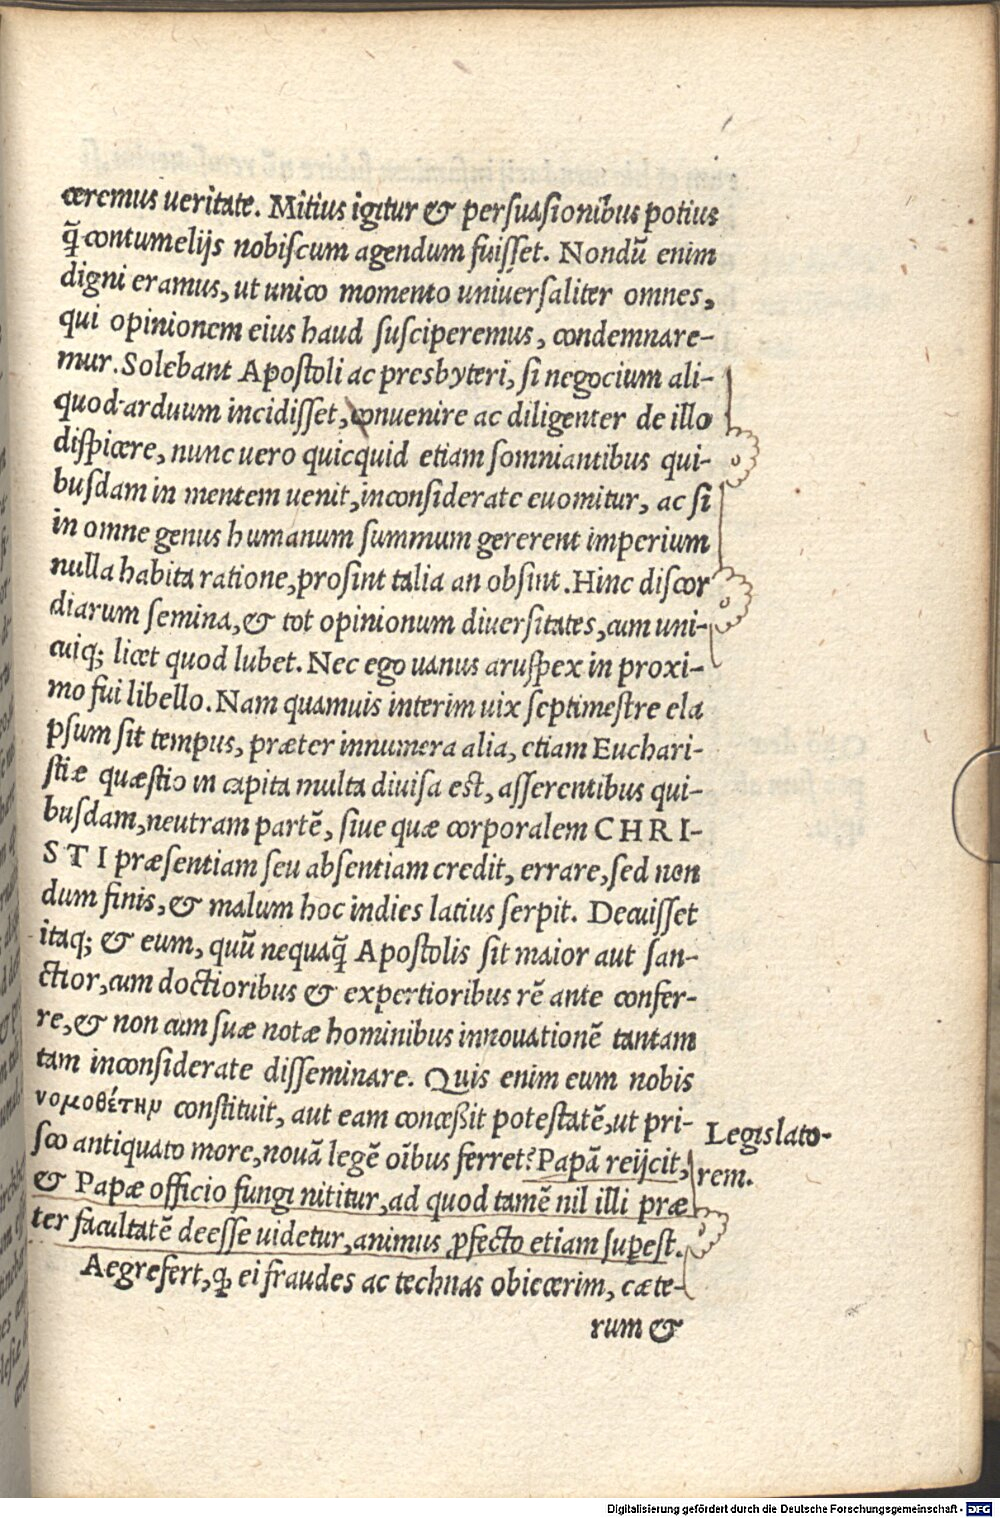 ceremus ueritate. Mitius igitur & persuasionibus potius
q̃ contumelijs nobiscum agendum fuisset. Nondũ enim
digni eramus, ut unico momento uniuersaliter omnes,
qui opinionem eius haud susciperemus, condemnare-
mur. Solebant Apostoli ac presbyteri, si negocium ali-
quod arduum incidisset, conuenire ac diligenter de illo
dispicere, nunc uero quicquid etiam somniantibus qui-
busdam in mentem uenit, inconsiderate euomitur, ac si
in omne genus humanum summum gererent imperium
nulla habita ratione, prosint talia an obsint. Hinc discor
diarum semina, & tot opinionum diuersitates, cum uni-
cuiq; licet quod lubet. Nec ego uanus aruspex in proxi-
mo fui libello. Nam quamuis interim uix septimestre ela
psum sit tempus, præter innumera alia, etiam Euchari-
stiæ quæstio in capita multa diuisa est, asserentibus qui-
busdam, neutram partẽ, siue quæ corporalem CHRI-
STI præsentiam seu absentiam credit, errare, sed non
dum finis, & malum hoc indies latius serpit. Decuisset
itaq; & eum, quũ nequaq̃ Apostolis sit maior aut san-
ctior, cum doctioribus & expertioribus rẽ ante confer-
re, & non cum suæ notæ hominibus innouationẽ tantam
tam inconsiderate disseminare. Quis enim eum nobis
νομοθέτην constituit, aut eam conceßit potestatẽ, ut pri-
sco antiquato more, nouã legẽ oĩbus ferret? Papã reijcit,
& Papæ officio fungi nititur, ad quod tamẽ nil illi præ
ter facultatẽ deesse uidetur, animus ꝓfecto etiam suꝑest.
Aegre fert, ꝙ ei fraudes ac technas obiecerim, cæte-
rum &
Legislato-
rem.
Digitalisierung gefördert durch die Deutsche Forschungsgemeinschaft - DFG